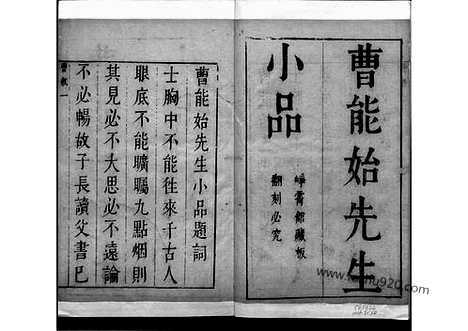 曹能始先生
小品
崢霄館藏板
翻刻必究
曹能始先生小品題詞
士胸中不能徃來千古人
眼底不能曠矚九點烟則
其見必不大思必不遠論
不必暢故子長讀父書已